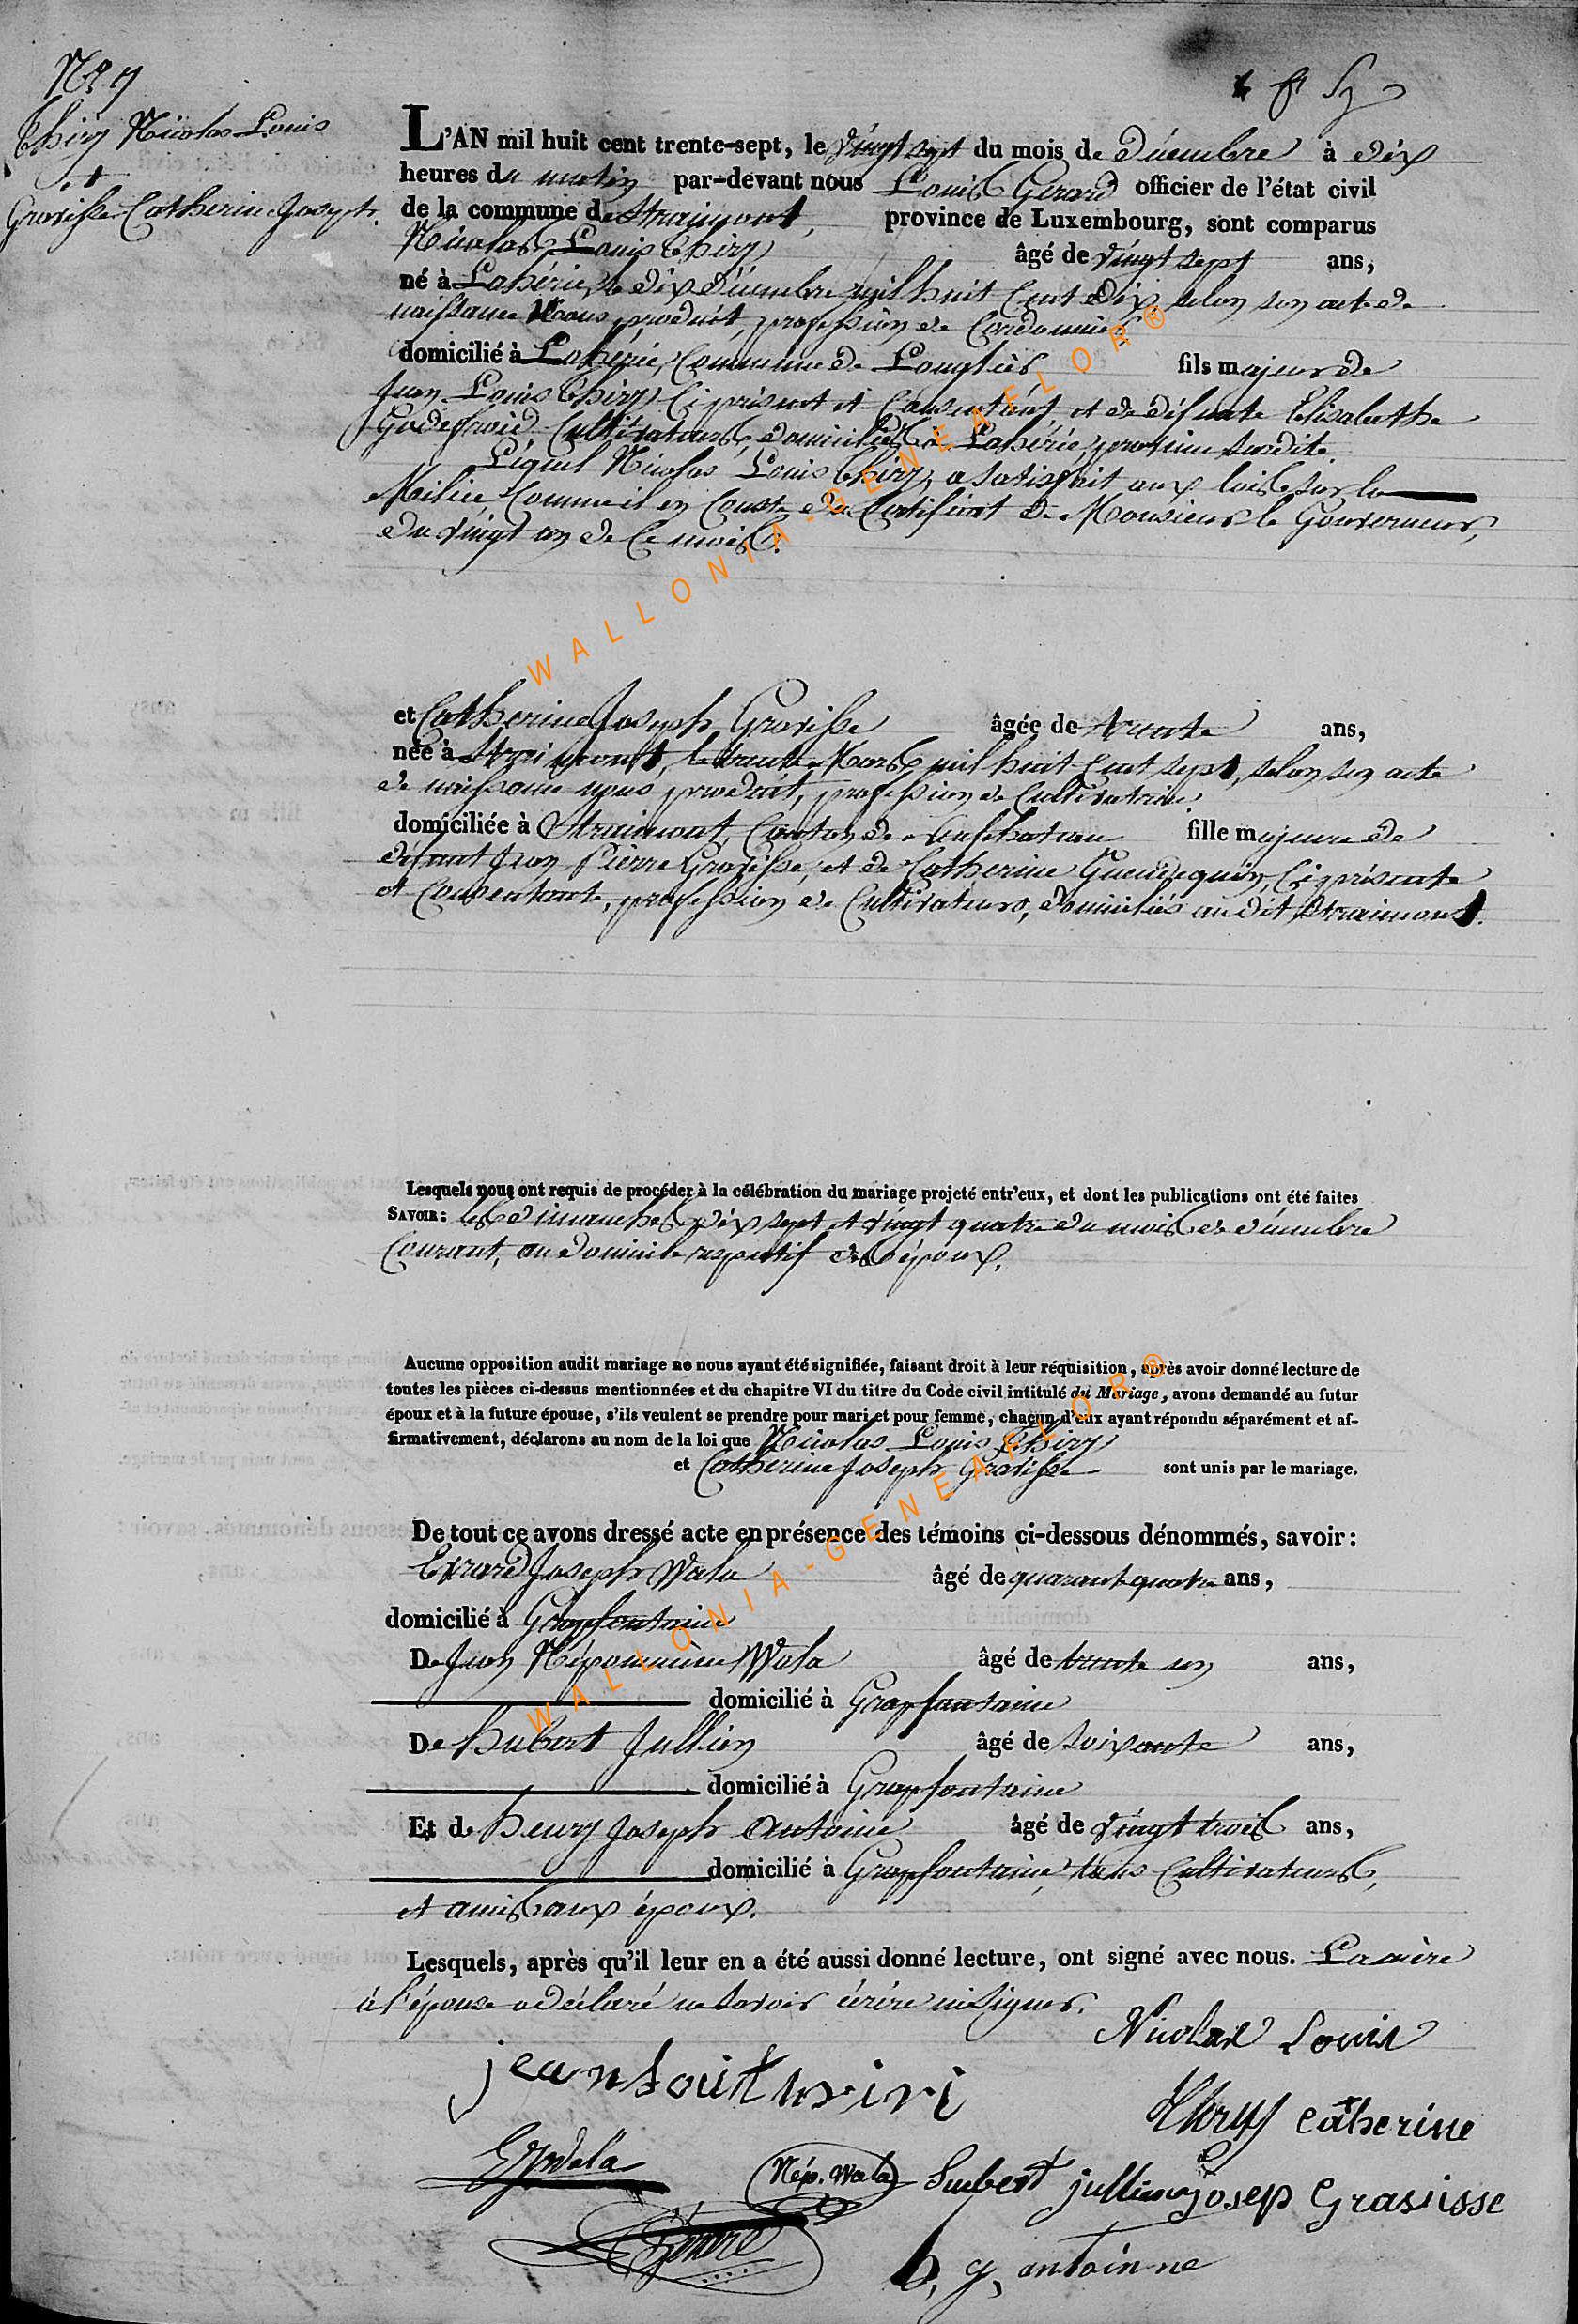 N.º 7
Thiry Nicolas Louis
et
Gravisse Catherine Joseph.
L'AN mil huit cent trente-sept, le vingt sept du mois de décembre à dix
heures du matin par-devant nous Louis Gerard officier de l'état civil
de la commune de Straimont, province de Luxembourg, sont comparus
Nicolas Louis Thiry âgé de vingt sept ans,
né à Lahérie, le dix décembre mil huit cent dix, selon son acte de
naissance nous produit, profession de Cordonnier
domicilié à Lahérie, Commune de Longlier, fils majeur de
Jean Louis Thiry Ci présent et Consentant, et de défunte Elisabethe
Godefroid, Cultivateurs, domiciliés à Lahérie, province susdite.
Lequel Nicolas Louis Thiry, a satisfait aux lois sur la
Milice, Comme il en Conste du Certificat de Monsieur le Gouverneur,
du vingt un de Ce mois.
et Catherine Joseph Gravisse âgée de trente ans,
née à Straimont, le trente Mars, mil huit Cent sept, selon son acte
de naissance nous produit, profession de Cultivatrice,
domiciliée à Straimont, Canton de Neufchateau fille majeure de
défunt Jean Pierre Gravisse, et de Catherine Gueidequin, Ci présente
et Consentante, profession de Cultivateurs, domiciliés audit Straimont.
Lesquels nous ont requis de procéder à la célébration du mariage projeté entr'eux, et dont les publications ont été faites
SAVOIR: les dimanches dix sept et vingt quatre du mois de décembre
Courant, au domicile respectif des époux.
Aucune opposition audit mariage ne nous ayant été signifiée, faisant droit à leur réquisition, après avoir donné lecture de
toutes les pièces ci-dessus mentionnées et du chapitre VI du titre du Code civil intitulé du Mariage, avons demandé au futur
époux et à la future épouse, s'ils veulent se prendre pour mari et pour femme, chacun d'eux ayant répondu séparément et af-
firmativement, déclarons au nom de la loi que Nicolas Louis Thiry
et Catherine Joseph Gravisse sont unis par le mariage.
De tout ce avons dressé acte en présence des témoins ci-dessous dénommés, savoir:
Evrard Joseph Wala âgé de quarante quatre ans,
domicilié à Grapfontaine
De Jean Népomucène Wala âgé de trente un ans,
domicilié à Grapfontaine
De Hubert Jullien âgé de soixante ans,
domicilié à Grapfontaine
Et de henry Joseph Antoine âgé de vingt trois ans,
domicilié à Grapfontaine, tous Cultivateurs,
et amis aux époux.
Lesquels, après qu'il leur en a été aussi donné lecture, ont signé avec nous. La mère
à l'épouse a déclaré ne savoir écrire ni signer.
Nicolas Louis
jean Louit thiri
Thiry Catherine
EJWala
Nép. Wala hubert jullien Josep Gravisse
Gérard
h, j, antoinne
WALLONIA-GENEAFLOR®
WALLONIA-GENEAFLOR®